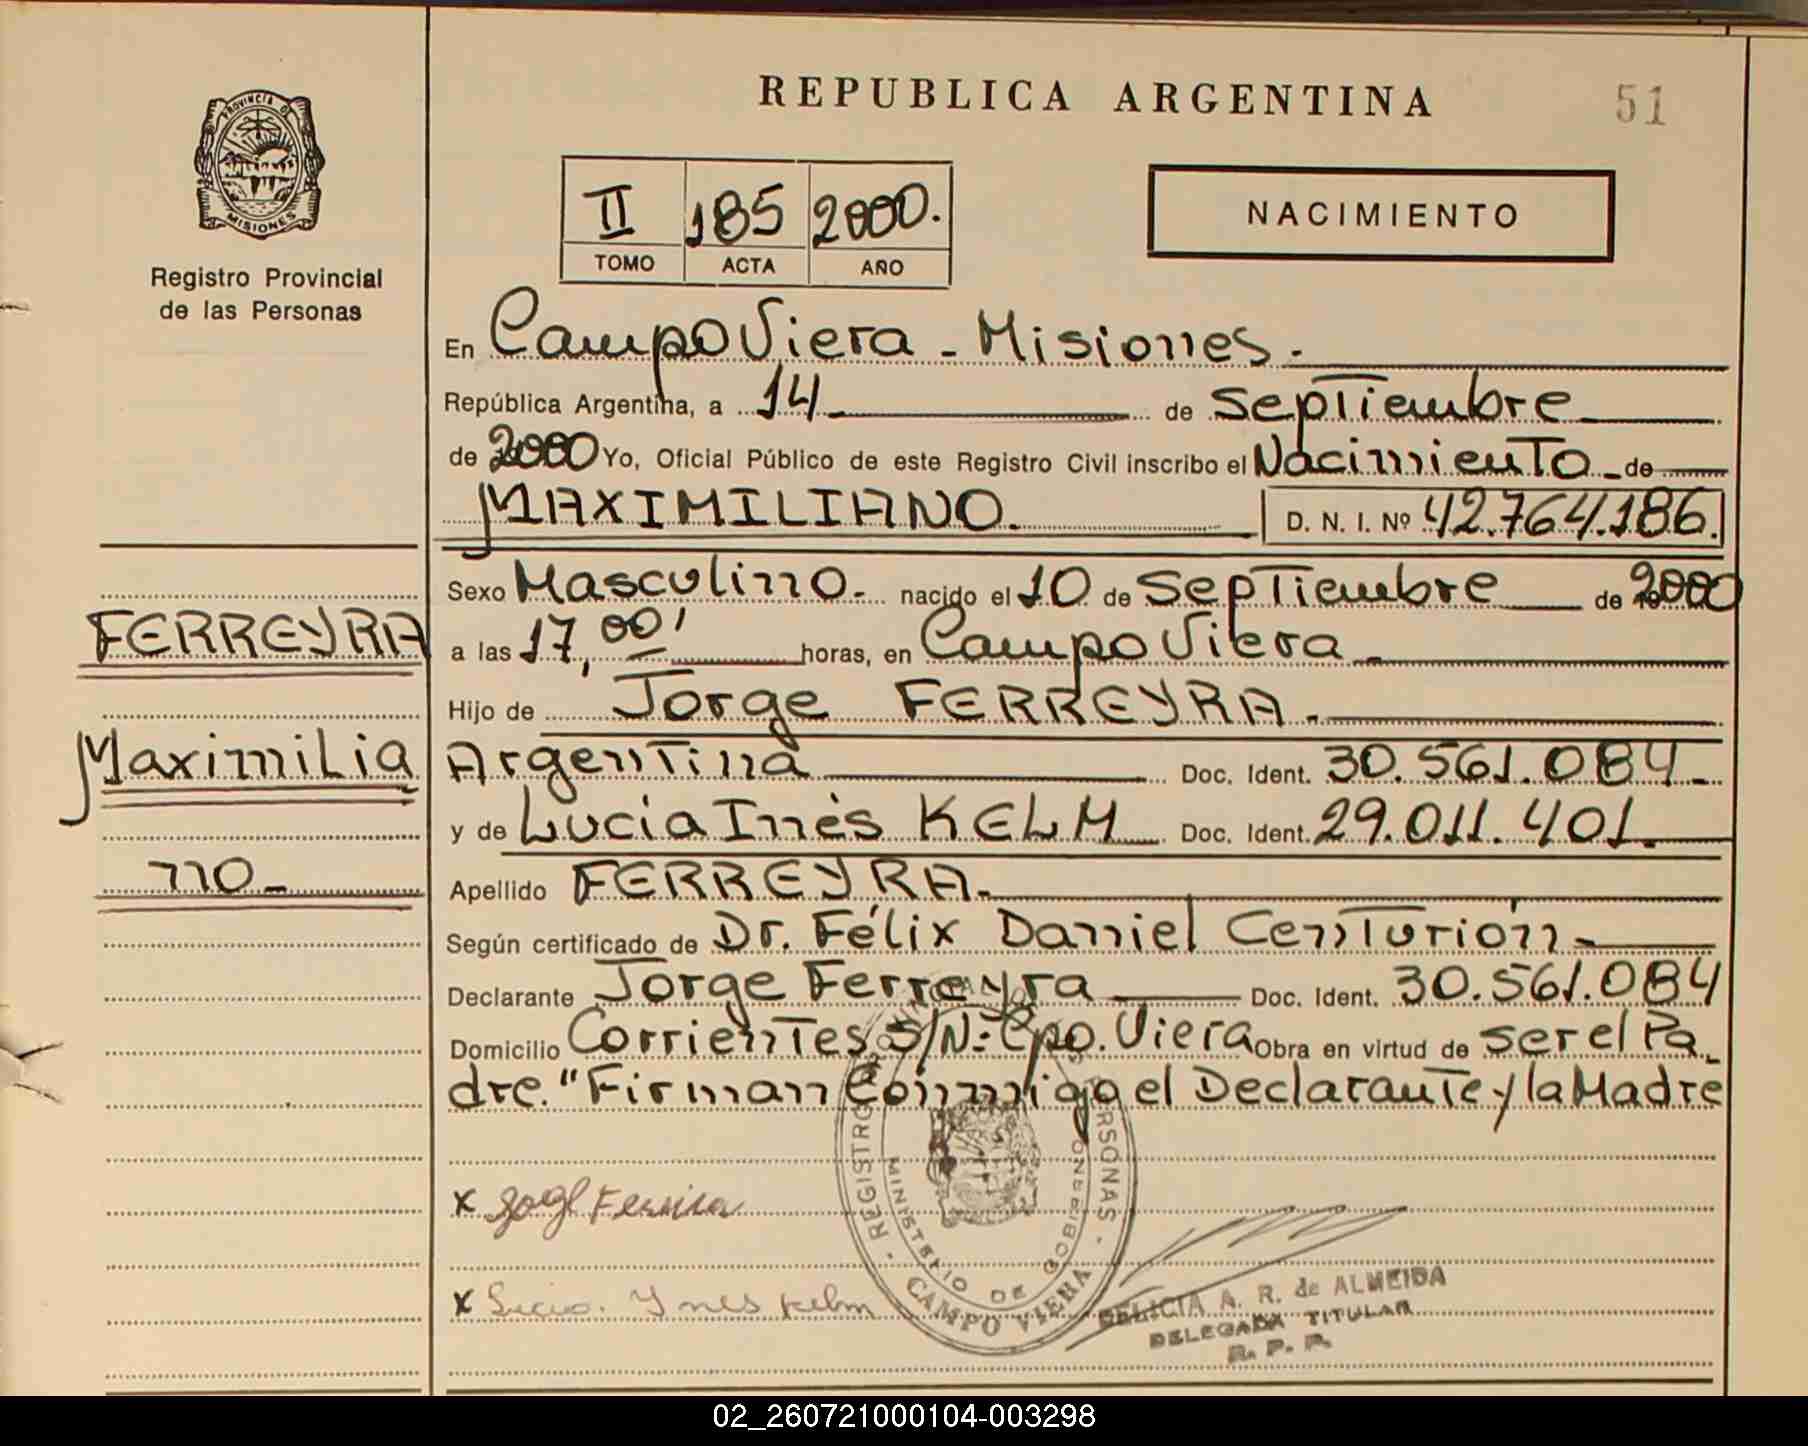 REPUBLICA ARGENTINA
51
PROVINCIA DE
MISIONES
Registro Provincial
de las Personas
II 185 2000.
TOMO ACTA AÑO
NACIMIENTO
En Campo Viera - Misiones.
República Argentina, a 14 de Septiembre
de 2000 Yo, Oficial Público de este Registro Civil inscribo el Nacimiento de
MAXIMILIANO. D. N. I. Nº 42.764.186.
Sexo Masculino. nacido el 10 de Septiembre de 2000
FERREYRA
a las 17,00' horas, en Campo Viera
Hijo de Jorge FERREYRA.
Maximilia
Argentina Doc. Ident. 30.561.084
y de Lucia Inés KELM Doc. Ident. 29.011.401.
no-
Apellido FERREYRA.
Según certificado de Dr. Félix Daniel Centurión
Declarante Jorge Ferreyra Doc. Ident. 30.561.084
Domicilio Corrientes S/Nº Cpo. Viera Obra en virtud de ser el Pa
dre. "Firman Conmigo el Declarante y la Madre
REGISTRO PROVINCIAL DE LAS PERSONAS
MINISTERIO DE GOBIERNO
CAMPO VIERA
x
x Inés Kelm
DELICIA A. R. de ALMEIDA
DELEGADA TITULAR
R. P. P.
02_260721000104-003298